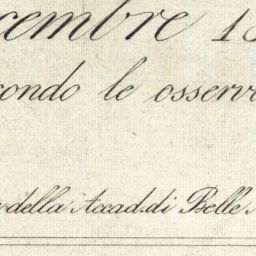 cembre 18
condo le osserv
della Accad. di Belle